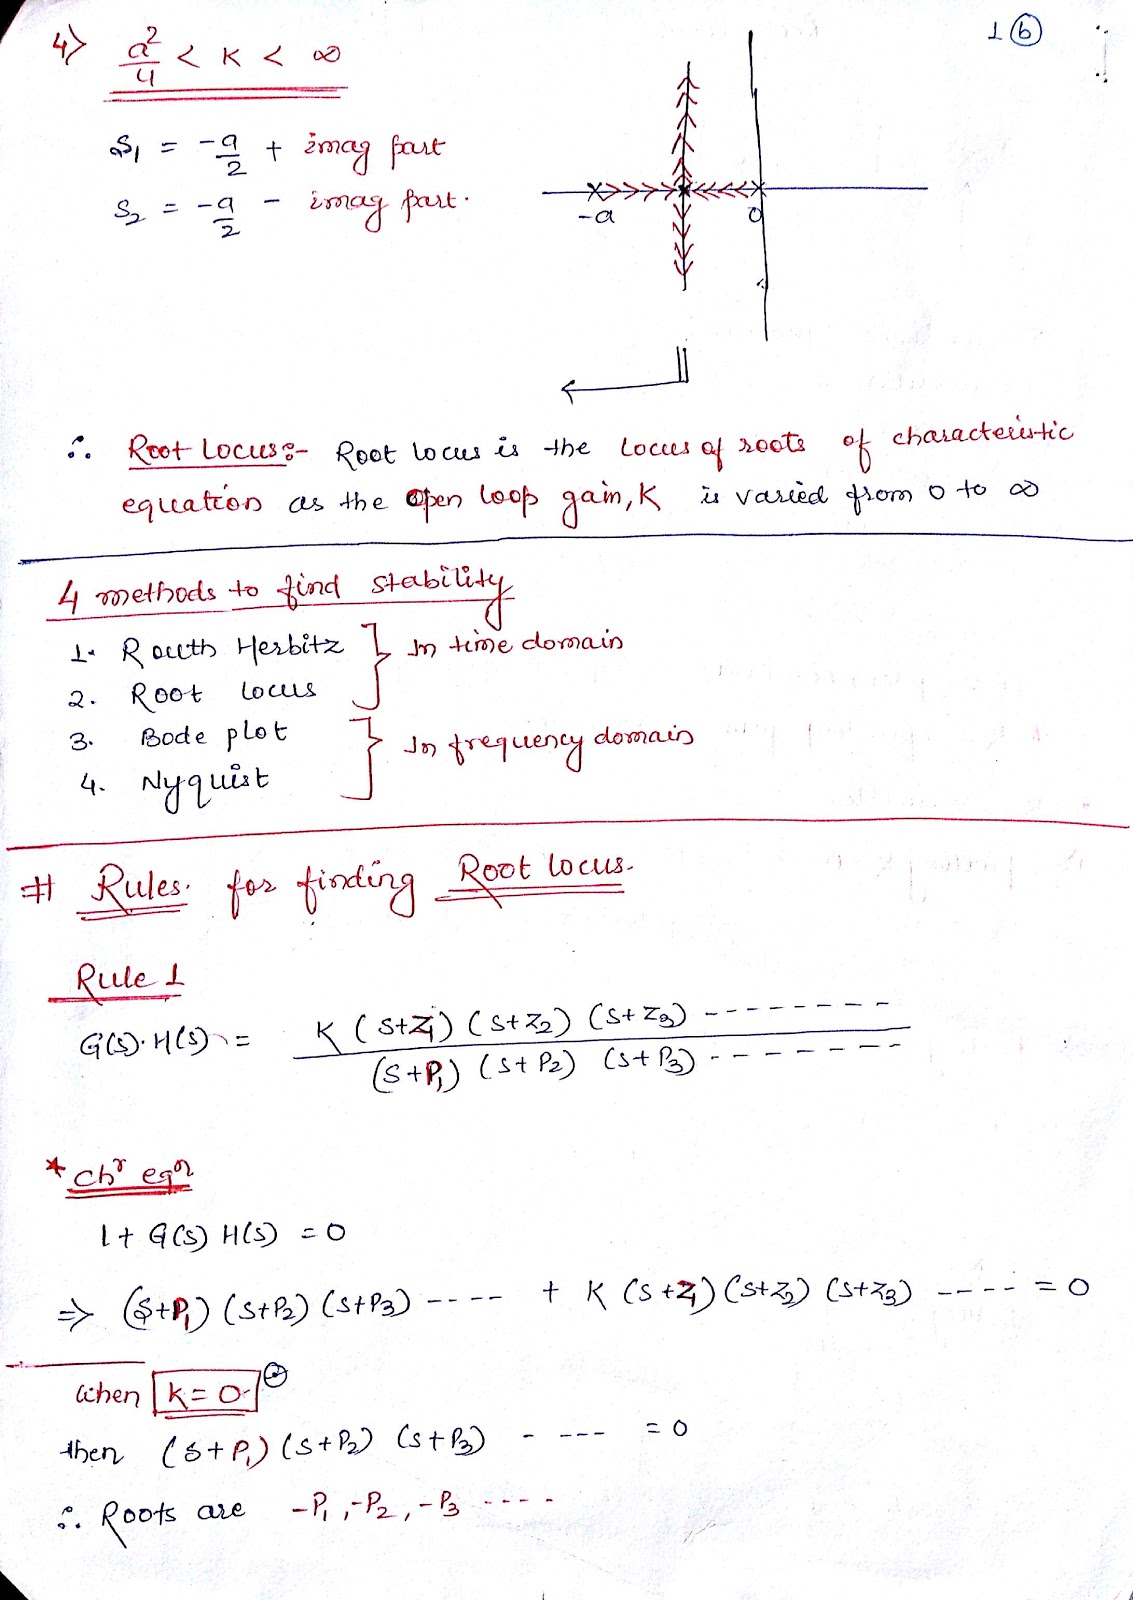 1 (b)
4) a²/4 < K < ∞
S₁ = -a/2 + imag part
S₂ = -a/2 - imag part.
-a
0
∴ Root Locus:- Root locus is the locus of roots of characteristic
equation as the open loop gain, K is varied from 0 to ∞
4 methods to find stability
1. Routh Herbitz } In time domain
2. Root locus
3. Bode plot } In frequency domain
4. Nyquist
# Rules. for finding Root locus.
Rule 1
G(s).H(s) = K (s+Z₁) (s+Z₂) (s+Z₃) --------
(s+P₁) (s+P₂) (s+P₃) --------
* Chʳ eqⁿ
1+ G(s) H(s) = 0
⇒ (s+P₁) (s+P₂) (s+P₃) ---- + K (s+Z₁) (s+Z₂) (s+Z₃) ---- = 0
when K = 0
then (s+P₁) (s+P₂) (s+P₃) - --- = 0
∴ Roots are -P₁, -P₂, -P₃ ----